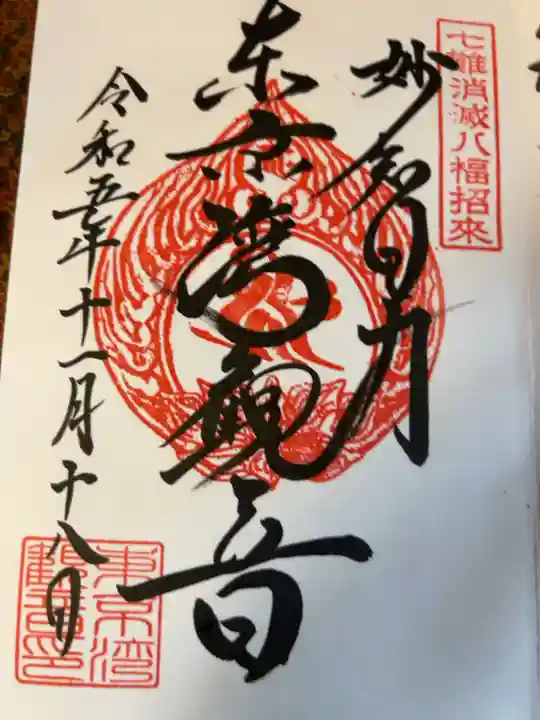 七難消滅八福招來
妙智力
東京湾観音
令和五年十一月十八日
東京湾
観音印